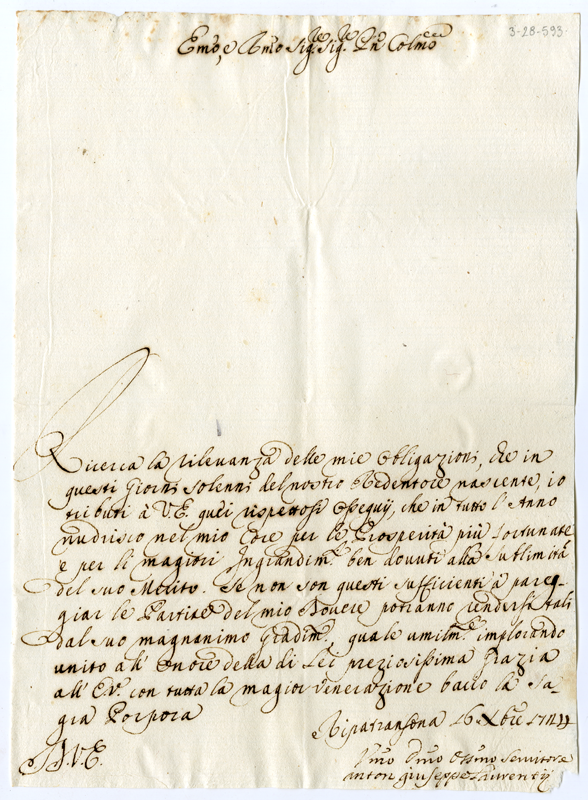 3-28-593
Emo, e Rmo Sig.re Sig.re Pne Colmo
Ricerca la rilevanza delle mie obligazioni, che in
questi Giorni solenni del nostro Redentore nascente, io
tributi à V.E. quei rispettosi Ossequij, che in tutto l'Anno
nudrisco nel mio Core per le Prosperità più fortunate
e per li magiori Ingrandim.ti ben dovuti alla sublimità
del suo Merito. Se non son questi sufficienti à pareg-
giar le Partite del mio Dovere potranno rendersi tali
dal suo magnanimo Gradim.to, quale umilm.te implorando
unito all'Onore della di Lei preziosissima Grazia
all'E.V. con tutta la magior Venerazione bacio la Sa-
gra Porpora
Ripatransona 16 Xbre
D.V.E.
Umo Dmo Ossmo Servitore
Anton Giuseppe Laurentij